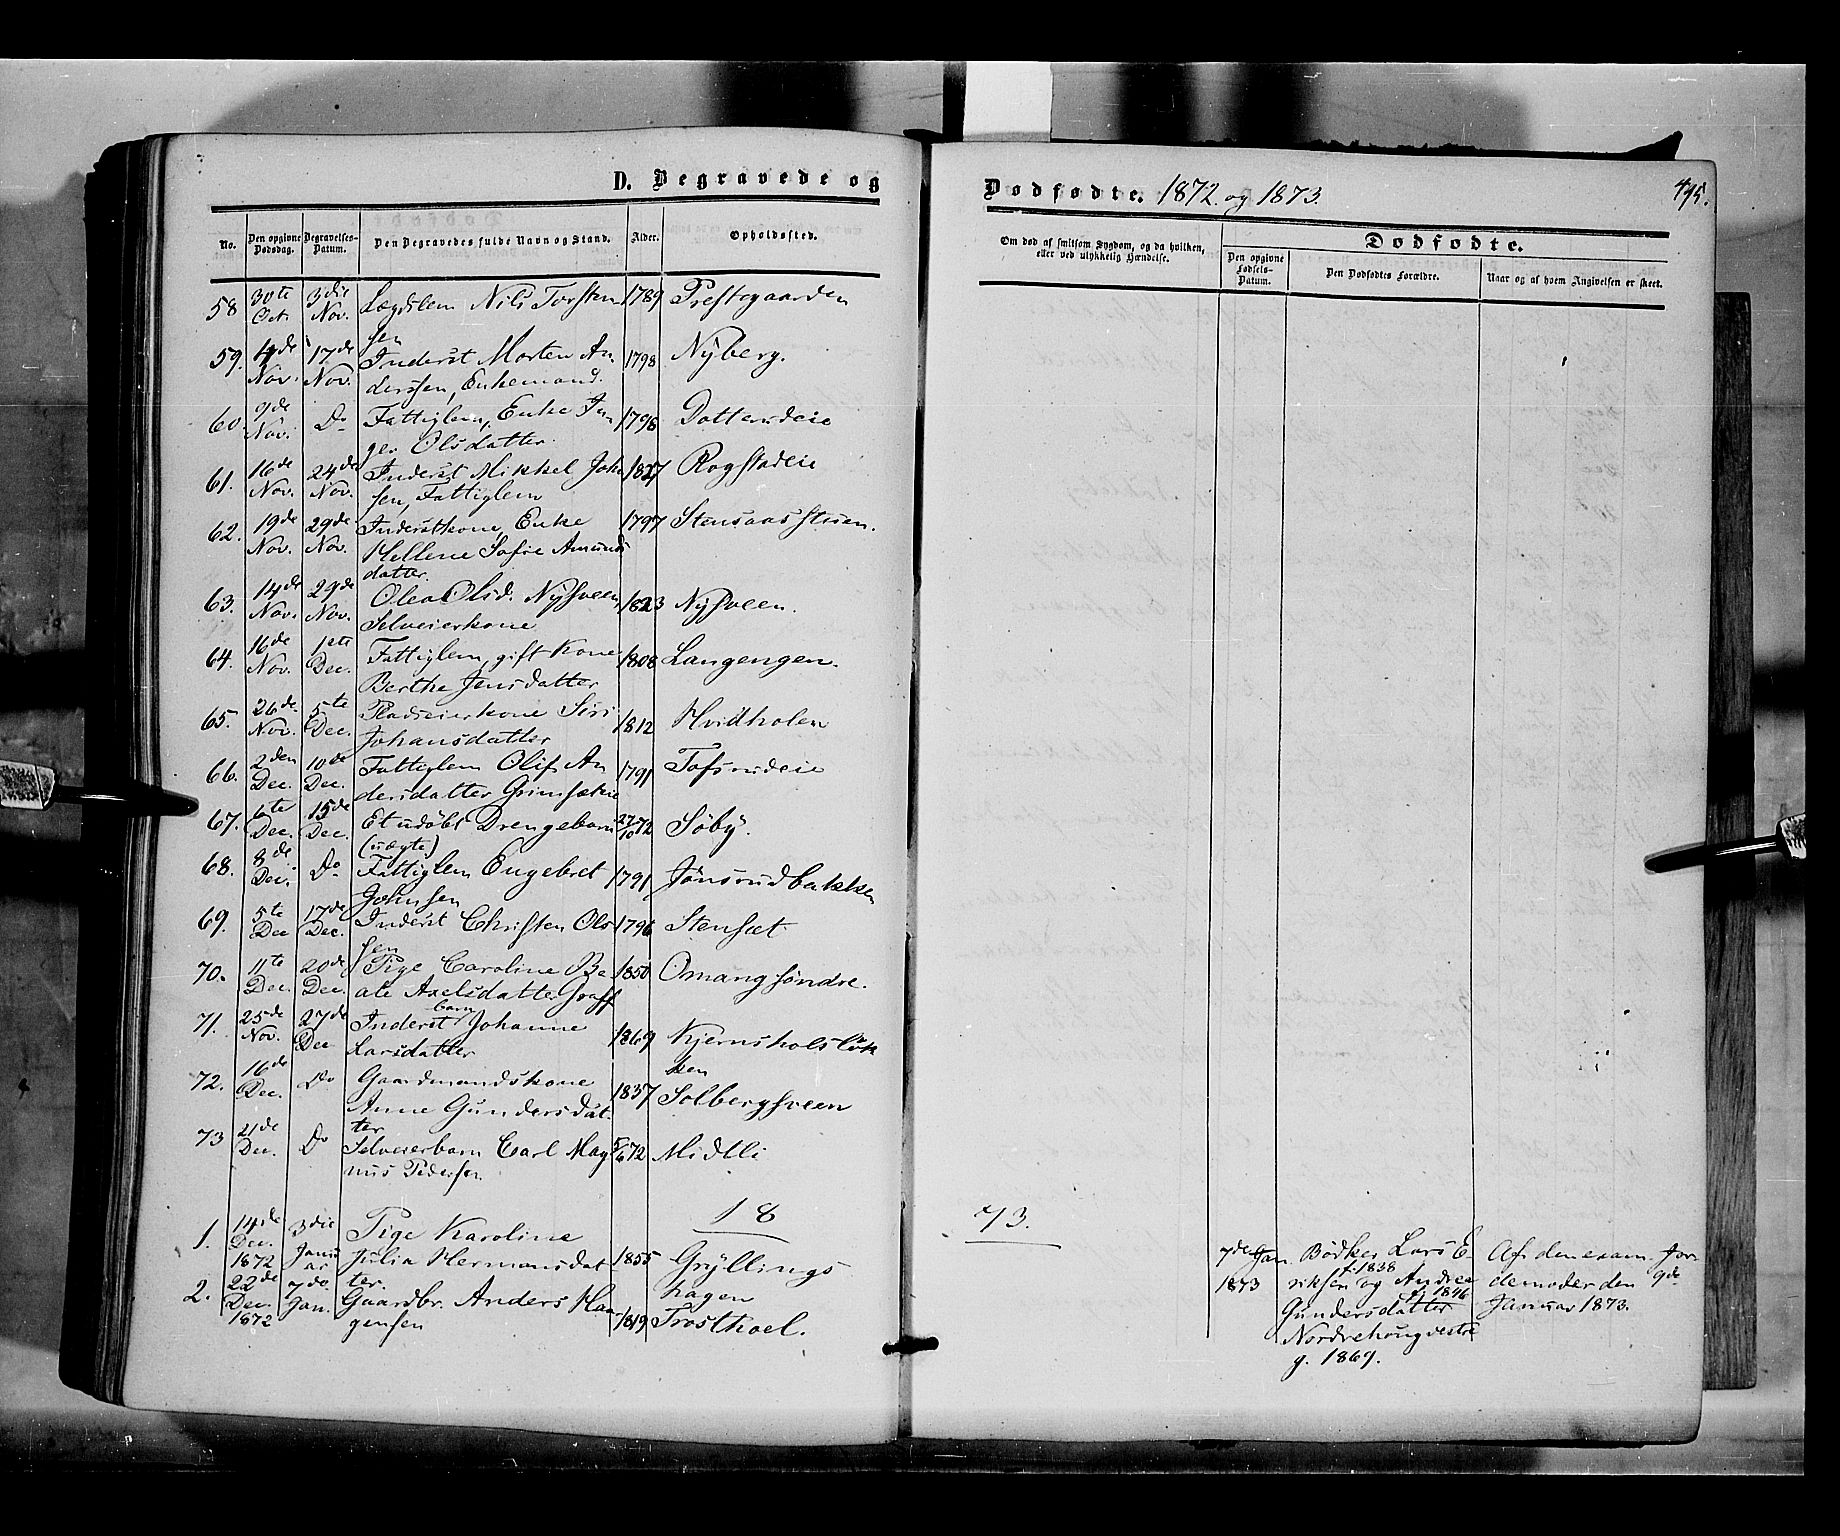 D. Begravede og
No.
Den opgivne Dødsdag.
Begravelses-Datum.
Den Begravedes fulde Navn og Stand.
Alder.
Opholdssted.
58 30te Oct. 3die Nov. Lægdslem Nils Torsten- 1789 Prestegaarden
sen
59. 4de Nov. 17de Nov. Inderst Morten An- 1798 Nyberg.
derssen, Enkemand.
60. 9de Nov. Do Fattiglem, Enke In- 1796 Dotterudeie
ger Olsdatter
61. 16de Nov. 24de Nov. Inderst Mikkel Joh 1827 Rogstadeie
sen, Fattiglem
62. 19de Nov. 29de Nov. Inderstkone, Enke 1797 Stensaasstuen.
Hellene Sofie Amunds
datter.
63. 14de Nov. 29de Nov. Olea Olsd. Nysveen 1823 Nysveen.
Selveierkone
64. 16de Nov. 1ste Dec. Fattiglem, gift Kone 1808 Langengen.
Berthe Jensdatter
65. 26de Nov. 5te Dec. Pladseierkone Siri 1812 Hvidholen
Johansdatter
66. 2den Dec. 10de Dec. Fattiglem Olif An 1791 Tofsrudeie
dersdatter
67. 6te Dec. 15de Dec. Et udøbt Drengebarn 27/10 72 Søby.
(uægte)
68. 8de Dec. Do Fattiglem Engebret 1791 Jønsrudbakken
Johnsen
69. 5te Dec 17de Dec. Inderst Christen Ols 1796 Stensæt
sen
70. 11te Dec. 20de Dec. Pige Caroline Be 1850 Omang søndre.
ate Axelsdatter Graff
71. 25de Nov. 27de Dec Inderst barn Johanne 1869 Kjernsholsløk
Larsdatter ken
72. 16de Dec. Do Gaardmandskone 1837 Solbergsveen
Anne Gundersdat
ter
73 21de Dec. Do Selveierbarn Carl Mag 5/6 72 Midtli
nus Pedersen.
18
1. 14de Dec. 1872 3die Januar Pige Karoline
Julia Hermansdat 1855 Gryllings
ter. hagen
2. 22de Dec. 1872 7de Jan. Gaardbr. Anders Haa 1819 Frostkoel.
gensen
Dødfødte. 1872. og 1873.
495.
Om død af smitsom Sygdom, og da hvilken,
eller ved ulykkelig Hændelse.
Dødfødte.
Den opgivne Fødsels-Datum.
Den Dødfødtes Forældre.
Naar og af hvem Angivelsen er skeet.
73.
7de Jan. Bødker Lars E- Af den exam. Jor-
f. 1838
1873 riksen og Andrea demoder den 9de
f. 1846
Gundersdatter Januar 1873.
Nordrehougvestre
g. 1869.